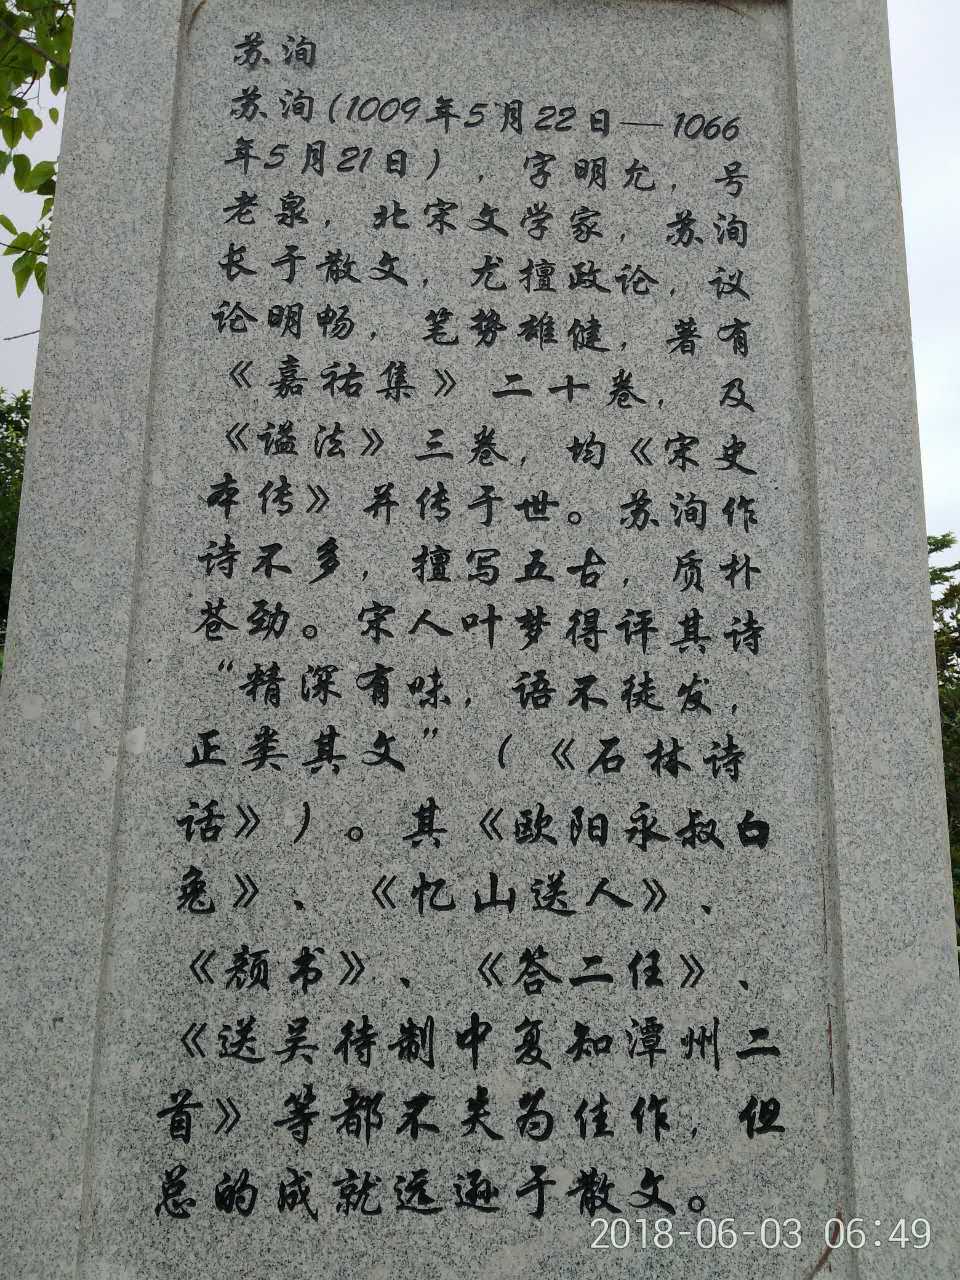 苏洵
苏洵(1009年5月22日—1066
年5月21日），字明允，号
老泉，北宋文学家，苏洵
长于散文，尤擅政论，议
论明畅，笔势雄健，著有
《嘉祐集》二十卷，及
《谥法》三卷，均《宋史
本传》并传于世。苏洵作
诗不多，擅写五古，质朴
苍劲。宋人叶梦得评其诗
“精深有味，语不徒发，
正类其文”（《石林诗
话》）。其《欧阳永叔白
兔》、《忆山送人》、
《颜书》、《答二任》、
《送吴待制中复知潭州二
首》等都不失为佳作，但
总的成就远逊于散文。
2018-06-03 06:49